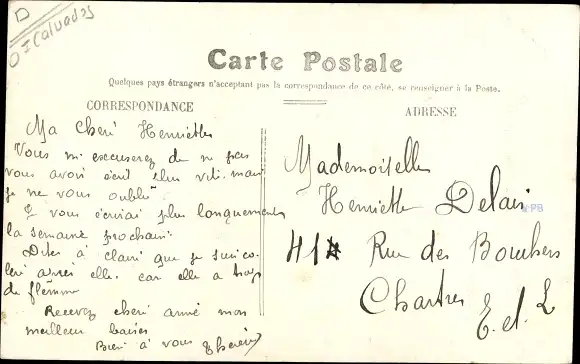 D
Calvados
Carte Postale
Quelques pays étrangers n'acceptant pas la correspondance de ce côté, se renseigner à la Poste.
CORRESPONDANCE
ADRESSE
Ma cheri Henriette
Vous mi escuserez de ne pas
vous avoir écrit plus vite. mais
je ne vous oublie
Je vous écrirai plus longuement
la semaine prochain
Dites à clair que je suis
elle. car elle a trop
de flemme
Recevez cheri amie mon
meilleur baiser
Bien à vous
Mademoiselle
Henriette Delain
41 Rue des Bouchers
Chartres
E. et. L